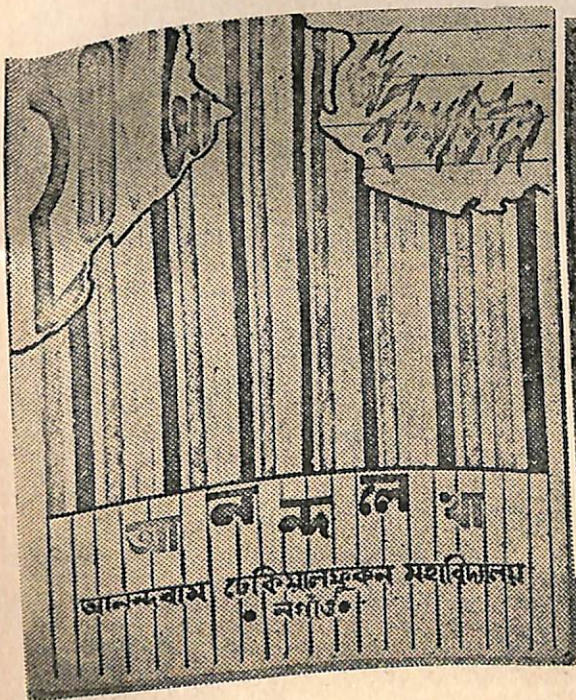 আনন্দলেখা
আনন্দৰাম ঢেকিয়ালফুকন মহাবিদ্যালয়
•নগাঁও•